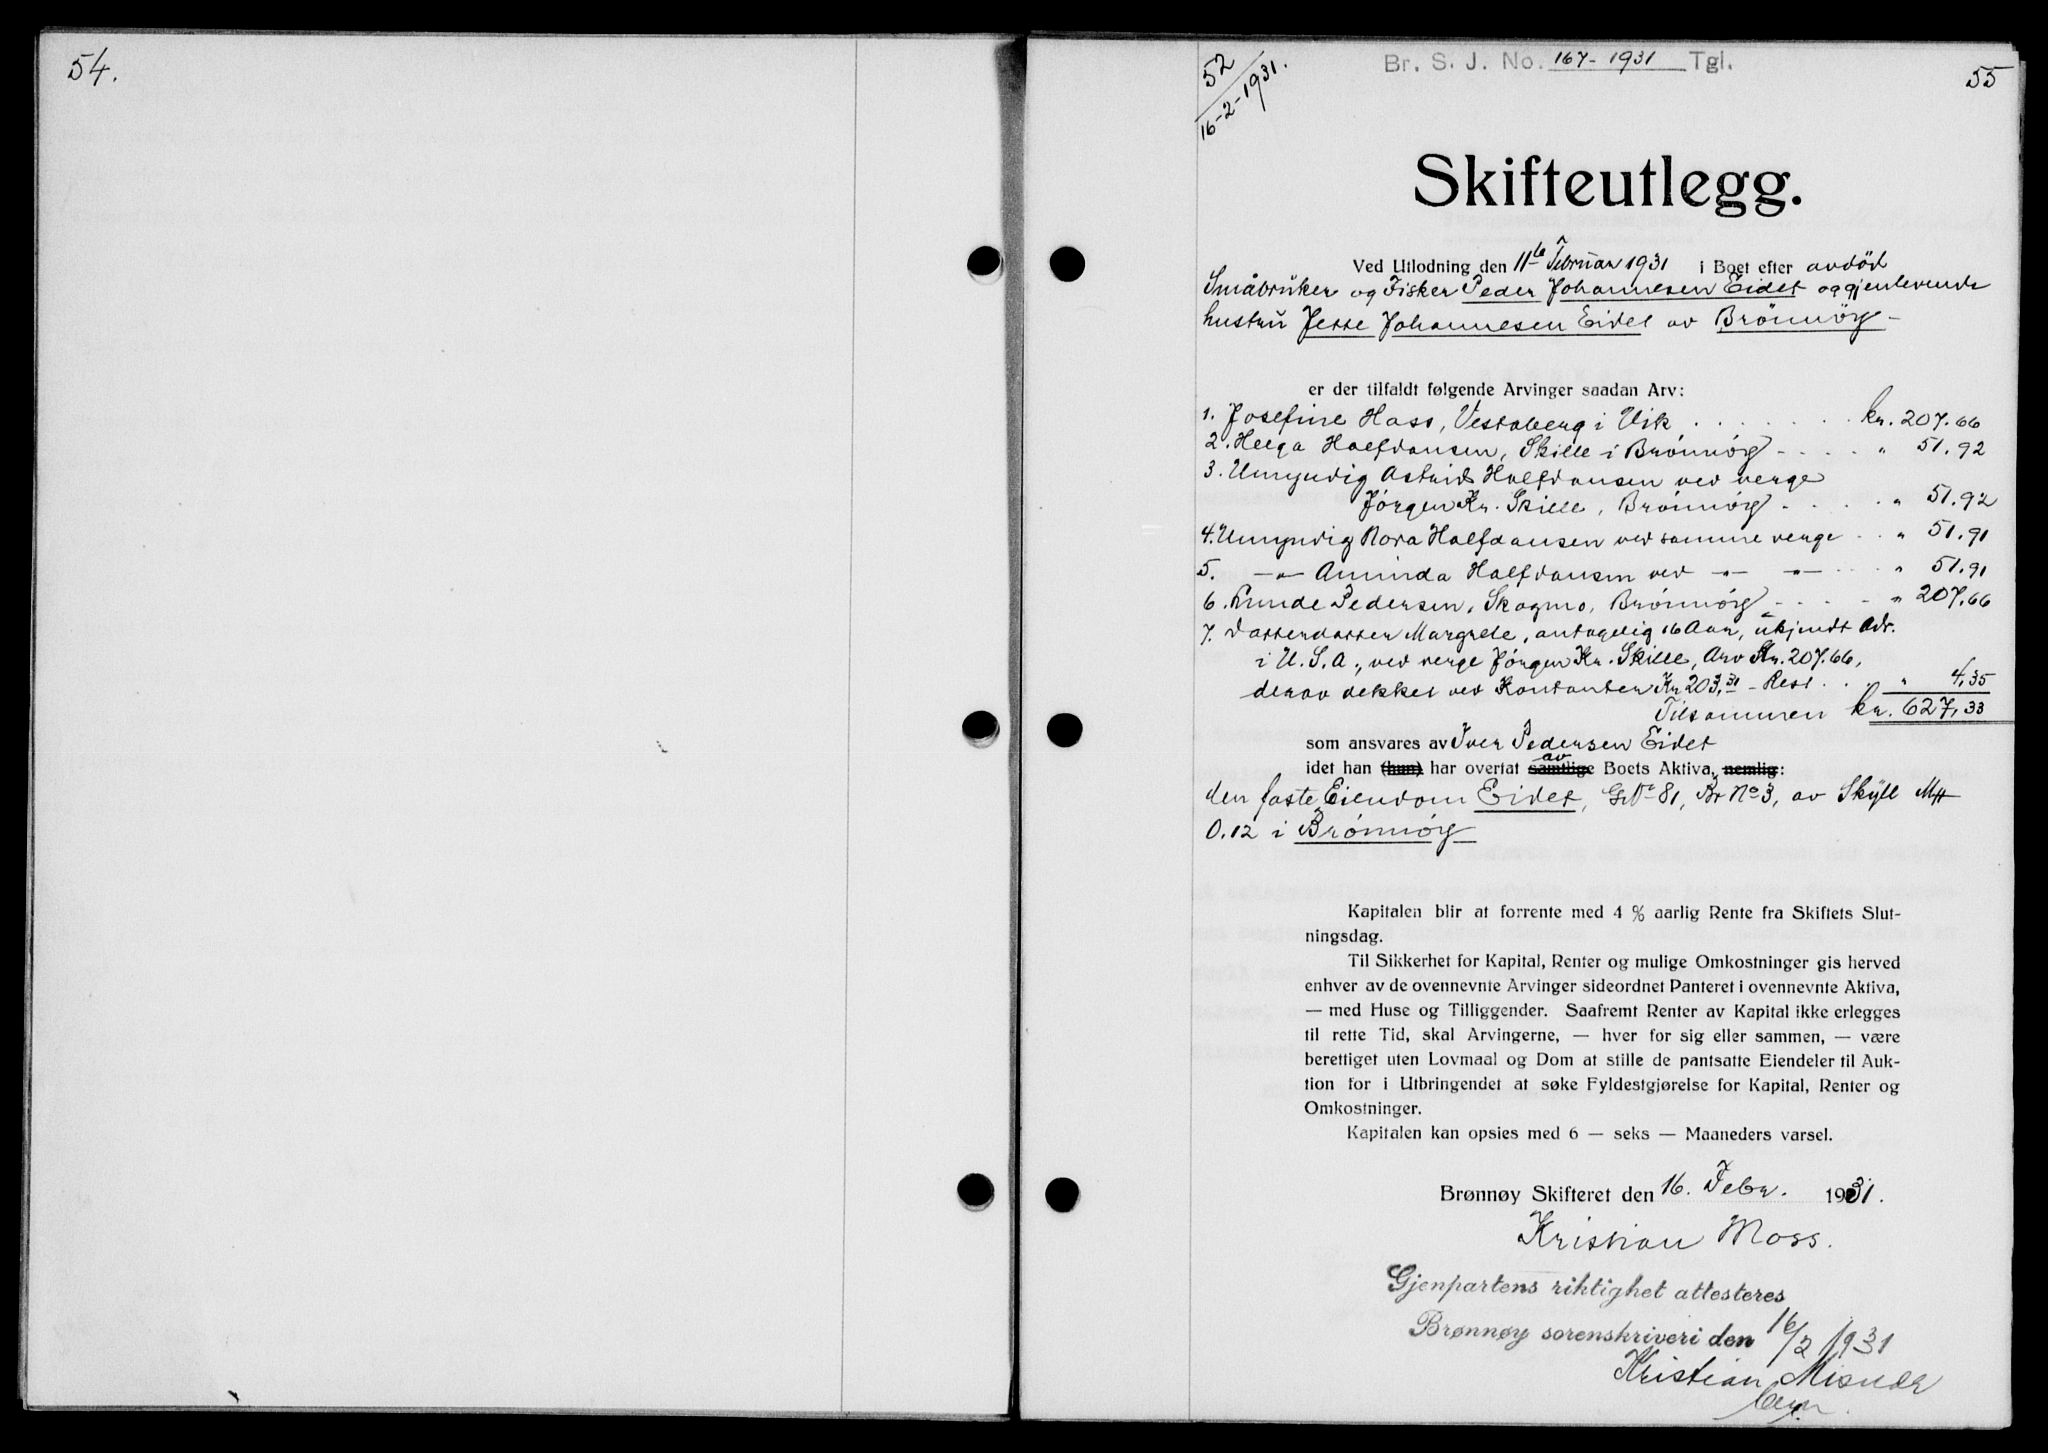 54.
52
16-2-1931.
Br. S. J. No. 167-1931 Tgl.
55
Skifteutlegg.
Ved Utlodning den 11te Februar 1931 i Boet efter avdöd
Småbruker og Fisker Peder Johannesen Eidet og gjenlevende
hustru Jesse Johannesen Eidet av Brönnöy -
er der tilfaldt følgende Arvinger saadan Arv:
1. Josefine Hass, Vestaberg i Vik . . . . . . . kr. 207.66
2. Helga Halfdansen, Skille i Brönnöy - . . . . " 51.92
3. Umyndig Astrid Halfdansen ved verge
Jörgen Kr. Skille, Brönnöy . . . . " 51.92
4. Umyndig Nora Halfdansen ved samme verge . . " 51.91
5. -"- Aminda Halfdansen ved -"- -"- . . . " 51.91
6. Pedersen, Skogmo, Brönnöy - . . . - " 207.66
7. Datterdatter Margrete, antagelig 16 Aar, ukjendt Adr.
i U.S.A., ved verge Jörgen Kr. Skille, Arv Kr. 207.66,
derav dekket ved Kontanter Kr 203,31 - Rest . . . " 4,35
Tilsammen kr. 627,33
som ansvares av Iver Pedersen Eidet
idet han (hun) har overtat samtlige av Boets Aktiva, nemlig:
den faste Eiendom Eidet, G.No 81, Br No 3, av Skyll Mk
0.12 i Brönnöy
Kapitalen blir at forrente med 4 % aarlig Rente fra Skiftets Slut-
ningsdag.
Til Sikkerhet for Kapital, Renter og mulige Omkostninger gis herved
enhver av de ovennevnte Arvinger sideordnet Panteret i ovennevnte Aktiva,
— med Huse og Tilliggender. Saafremt Renter av Kapital ikke erlegges
til rette Tid, skal Arvingerne, — hver for sig eller sammen, — være
berettiget uten Lovmaal og Dom at stille de pantsatte Eiendeler til Auk-
tion for i Utbringendet at søke Fyldestgjørelse for Kapital, Renter og
Omkostninger.
Kapitalen kan opsies med 6 — seks — Maaneders varsel.
Brønnøy Skifteret den 16. Febr. 1931.
Kristian Moss.
Gjenpartens riktighet attesteres
Brønnøy sorenskriveri den 16/2 1931
Kristian